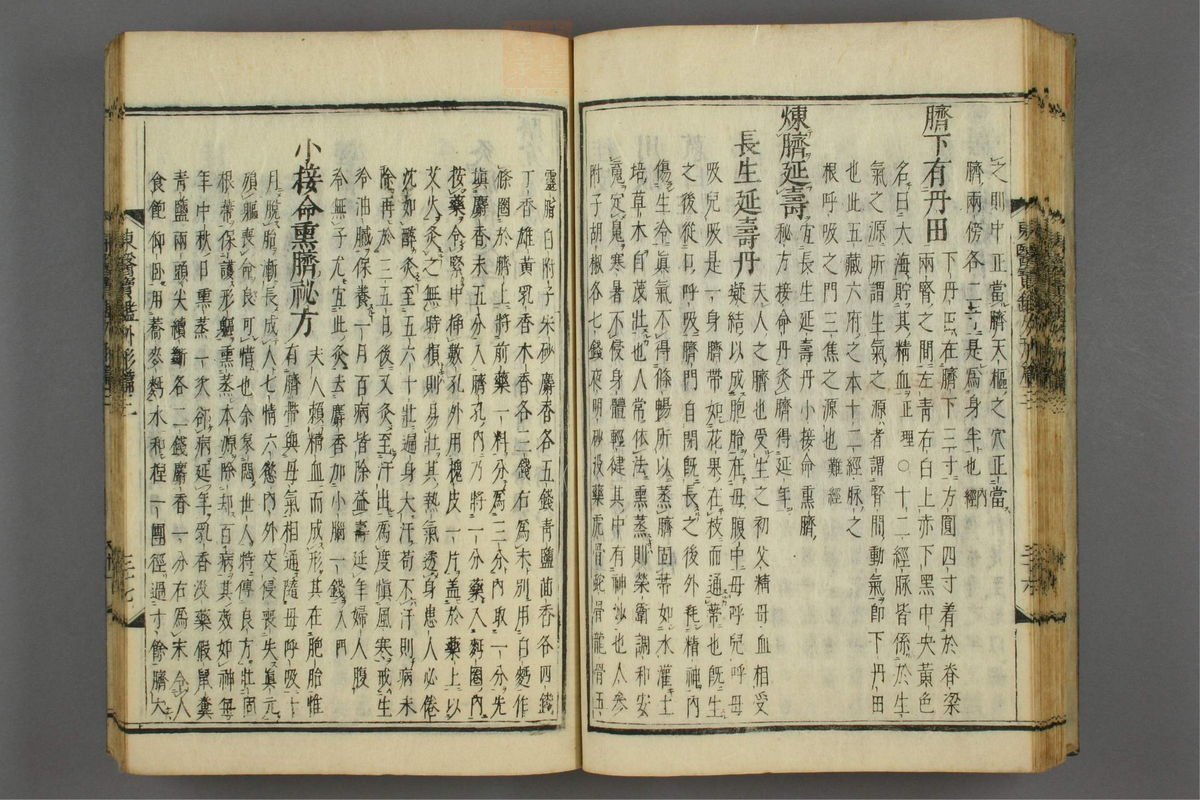 之則中正當臍天樞之穴正當
臍兩傍各二寸是爲身半也內經
臍下有丹田
下丹田在臍下三寸方圓四寸着於脊梁
兩腎之間左青右白上赤下黑中央黃色
名曰大海貯其精血正理○十二經脉皆係於生
氣之源所謂生氣之源者謂腎間動氣卽下丹田
也此五藏六府之本十二經脉之
根呼吸之門三焦之源也難經
煉臍延壽
秘方接命丹灸臍得延年
宜長生延壽丹小接命熏臍
長生延壽丹
夫人之臍也受生之初父精母血相受
凝結以成胞胎在母腹中母呼兒呼母
吸兒吸是一身臍帶如花果在枝而通蒂也旣生
之後從口呼吸臍門自閉旣長之後外耗精神內
傷生冷眞氣不得條暢所以蒸臍固蒂如水灌土
培草木自茂壯也人常依法熏蒸則榮衛調和安
魂定魄寒暑不侵身體輕健其中有神妙也人參
附子胡椒各七錢夜明砂沒藥虎骨蛇骨龍骨五
靈脂白附子朱砂麝香各五錢青鹽茴香各四錢
丁香雄黃乳香木香各二錢右爲末別用白麪作
條圈於臍上將前藥一料分爲三分內取一分先
塡麝香末五分入臍孔內乃將一分藥入麪圈內
按藥令緊中揷數孔外用槐皮一片盖於藥上以
艾火灸之無時損則易壯其熱氣透身患人必倦
沈如醉灸至五六十壯遍身大汗苟不汗則病未
除再於三五日後又灸至汗出爲度愼風寒戒生
冷油膩保養一月百病皆除益壽延年婦人腹
冷無子尤宜此灸去麝香加小腦一錢入門
小接命熏臍祕方
夫人賴精血而成形其在胞胎惟
有臍帶與母氣相通隨母呼吸十
月脫胎漸長成人七情六慾內外交侵喪失眞元
殞軀喪命良可惜也余衆閱世人特傳良方壯固
根蒂保護形軀熏蒸本源除却百病其效如神每
年中秋日熏蒸一次却病延年乳香沒藥假鼠糞
青鹽兩頭尖續斷各二錢麝香一分右爲末令人
食飽仰臥用蕎麥麪水和捏一團徑過寸餘臍大
東醫寶鑑外形篇三
三十七